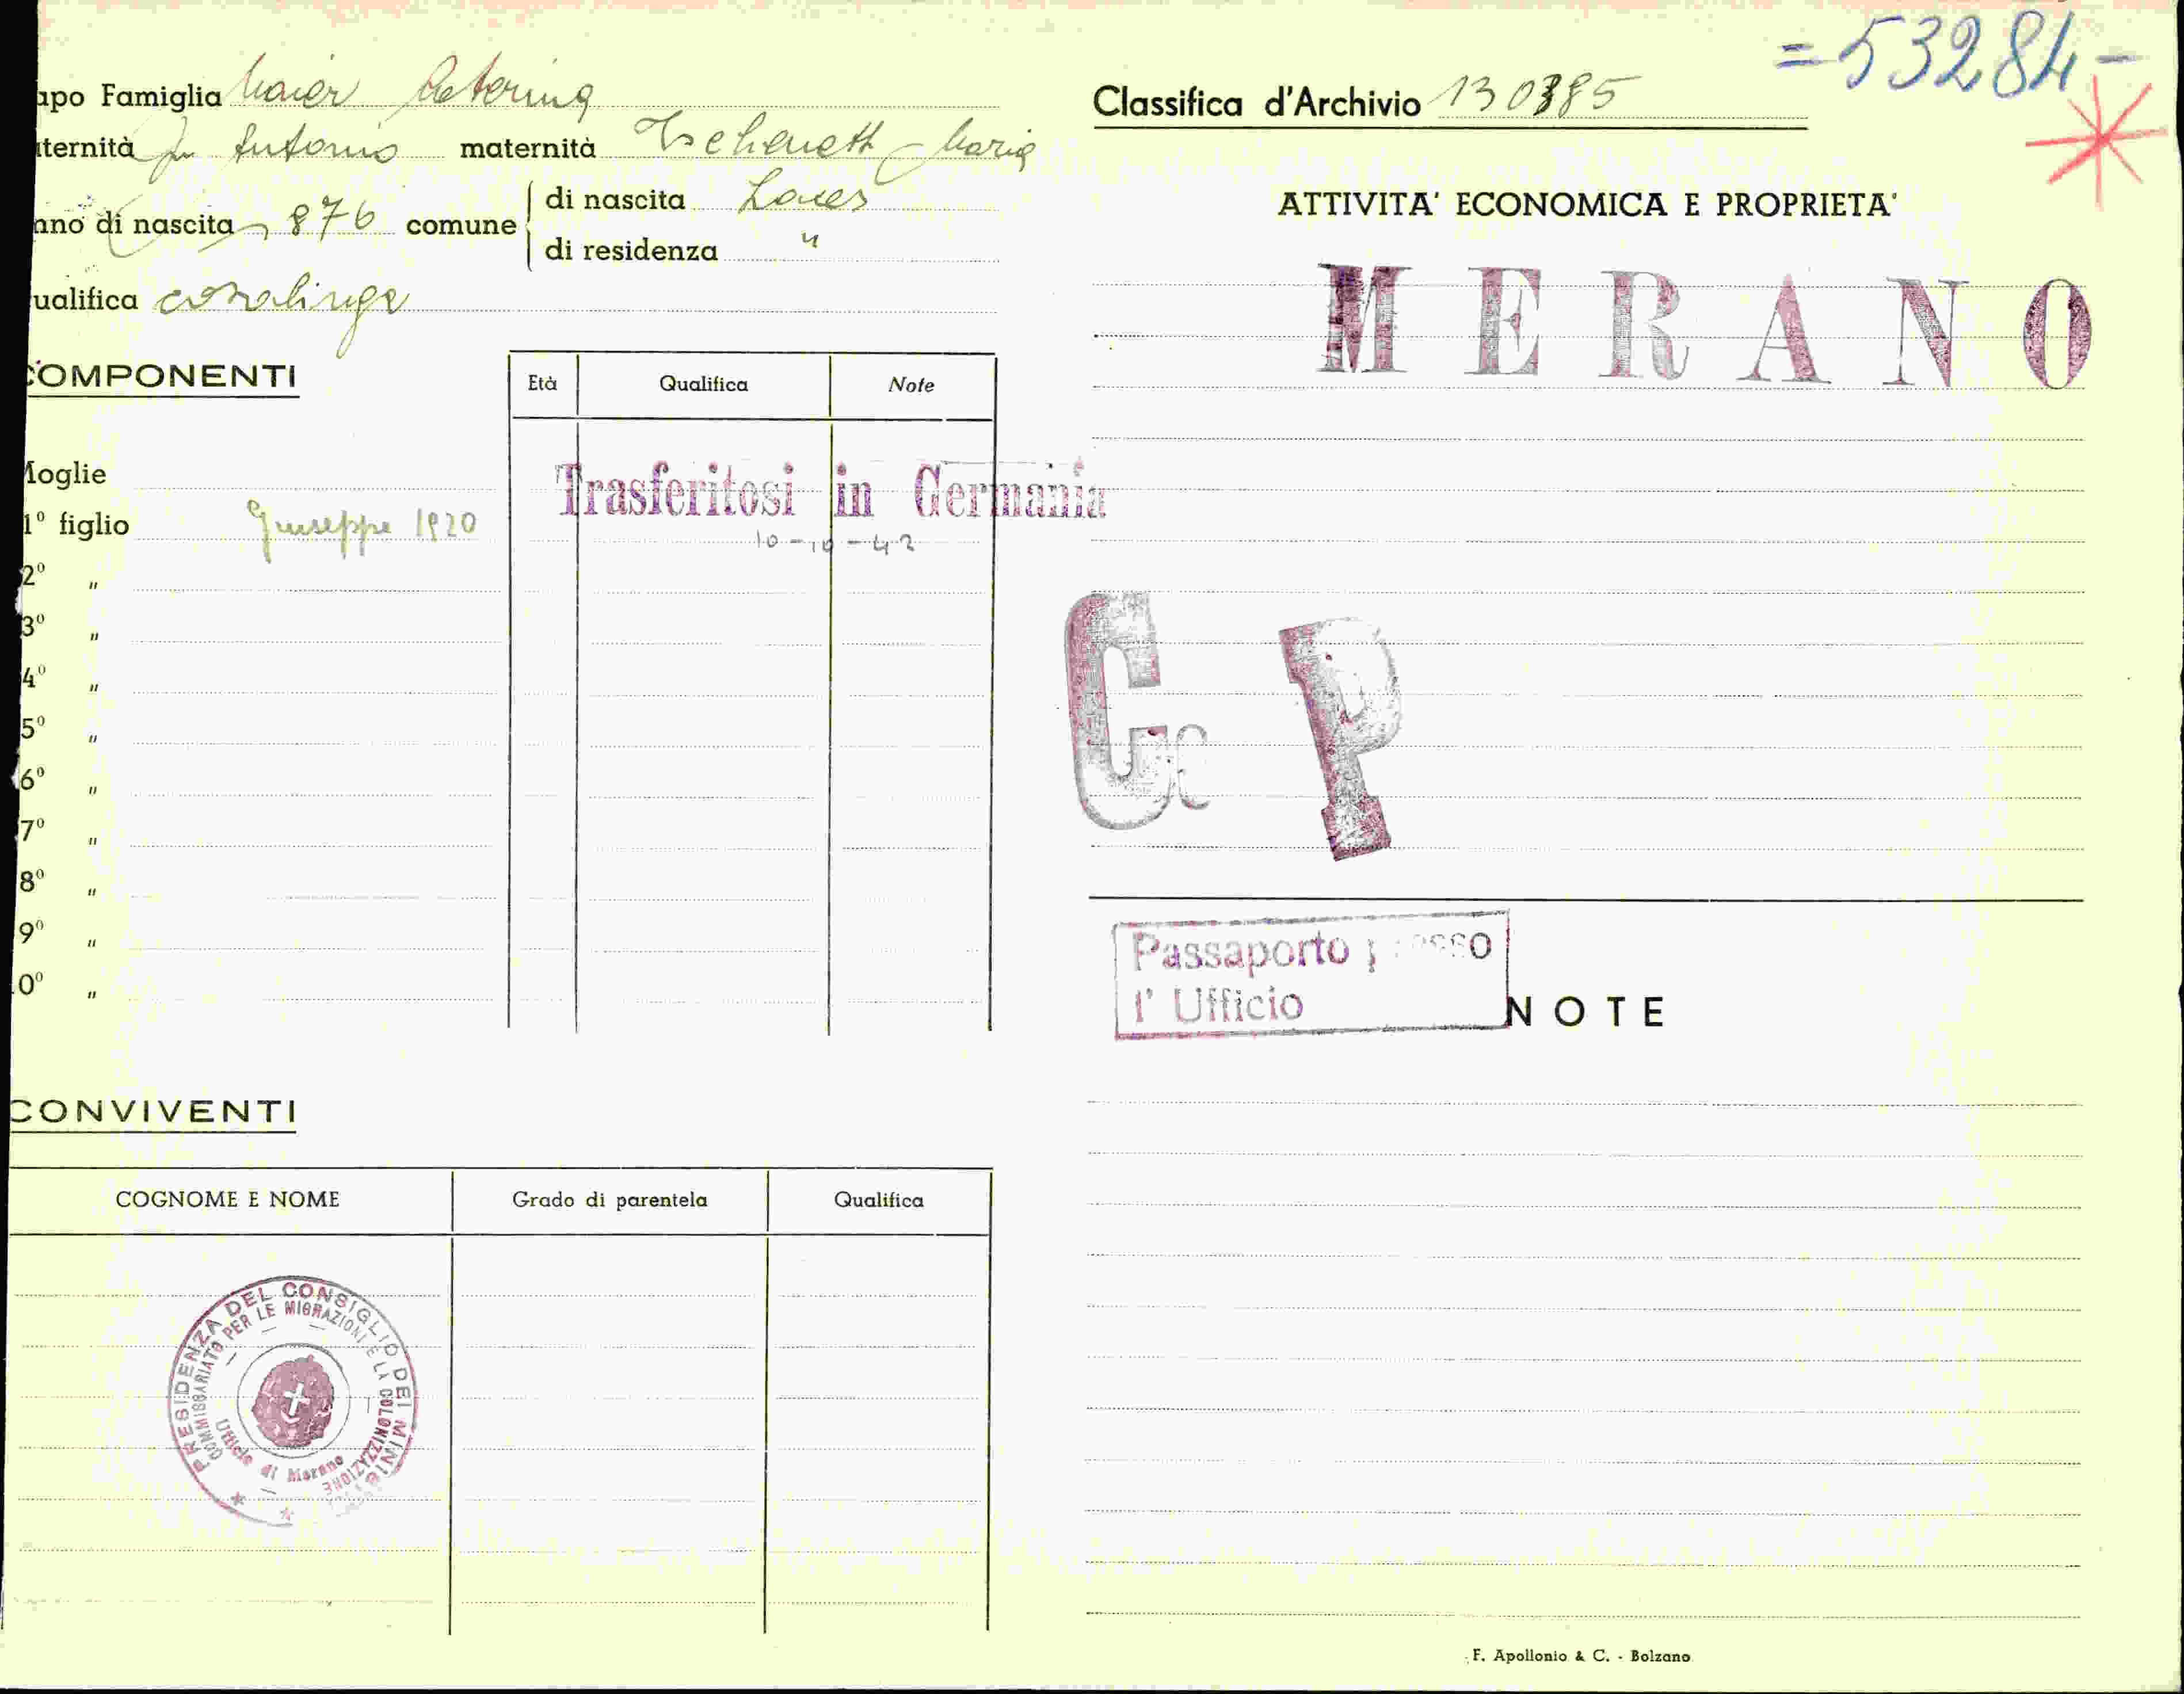 apo Famiglia Maier Caterina
ternità fu Antonio maternità Tschenett Maria
nno di nascita 876 comune di nascita Laces
di residenza "
ualifica casalinga
COMPONENTI
Età Qualifica Note
Moglie
Trasferitosi in Germania
1º figlio Giuseppe 1920
10-10-42
2º "
3º "
4º "
5º "
6º "
7º "
8º "
9º "
0º "
CONVIVENTI
COGNOME E NOME Grado di parentela Qualifica
PRESIDENZA DEL CONSIGLIO DEI MINIS
COMMISSARIATO PER LE MIGRAZIONI E LA COLONIZZAZIONE
Ufficio di Merano
=53284-
Classifica d'Archivio 130385
ATTIVITA' ECONOMICA E PROPRIETA'
MERANO
G P
Passaporto presso
l' Ufficio
NOTE
F. Apollonio & C. - Bolzano